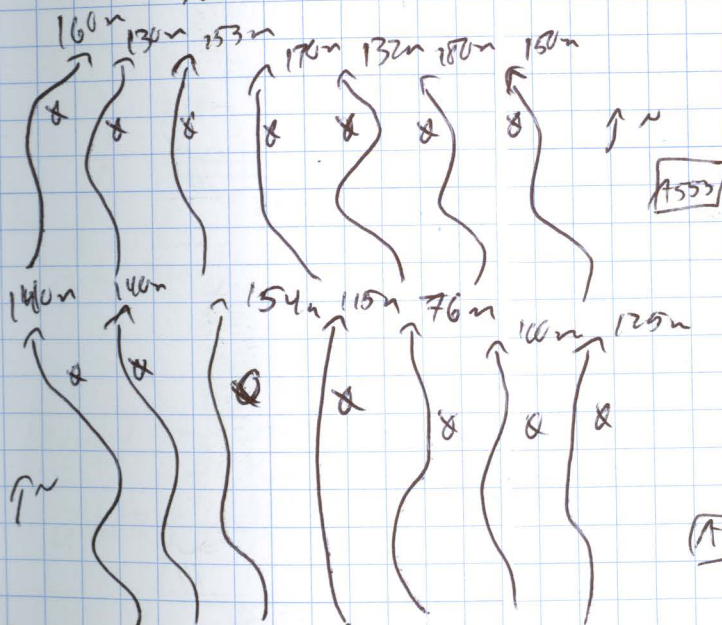 160m 130m 153m 170m 132m 180m 150m
N
A553
140m 140m 154m 115m 76m 100m 125m
N